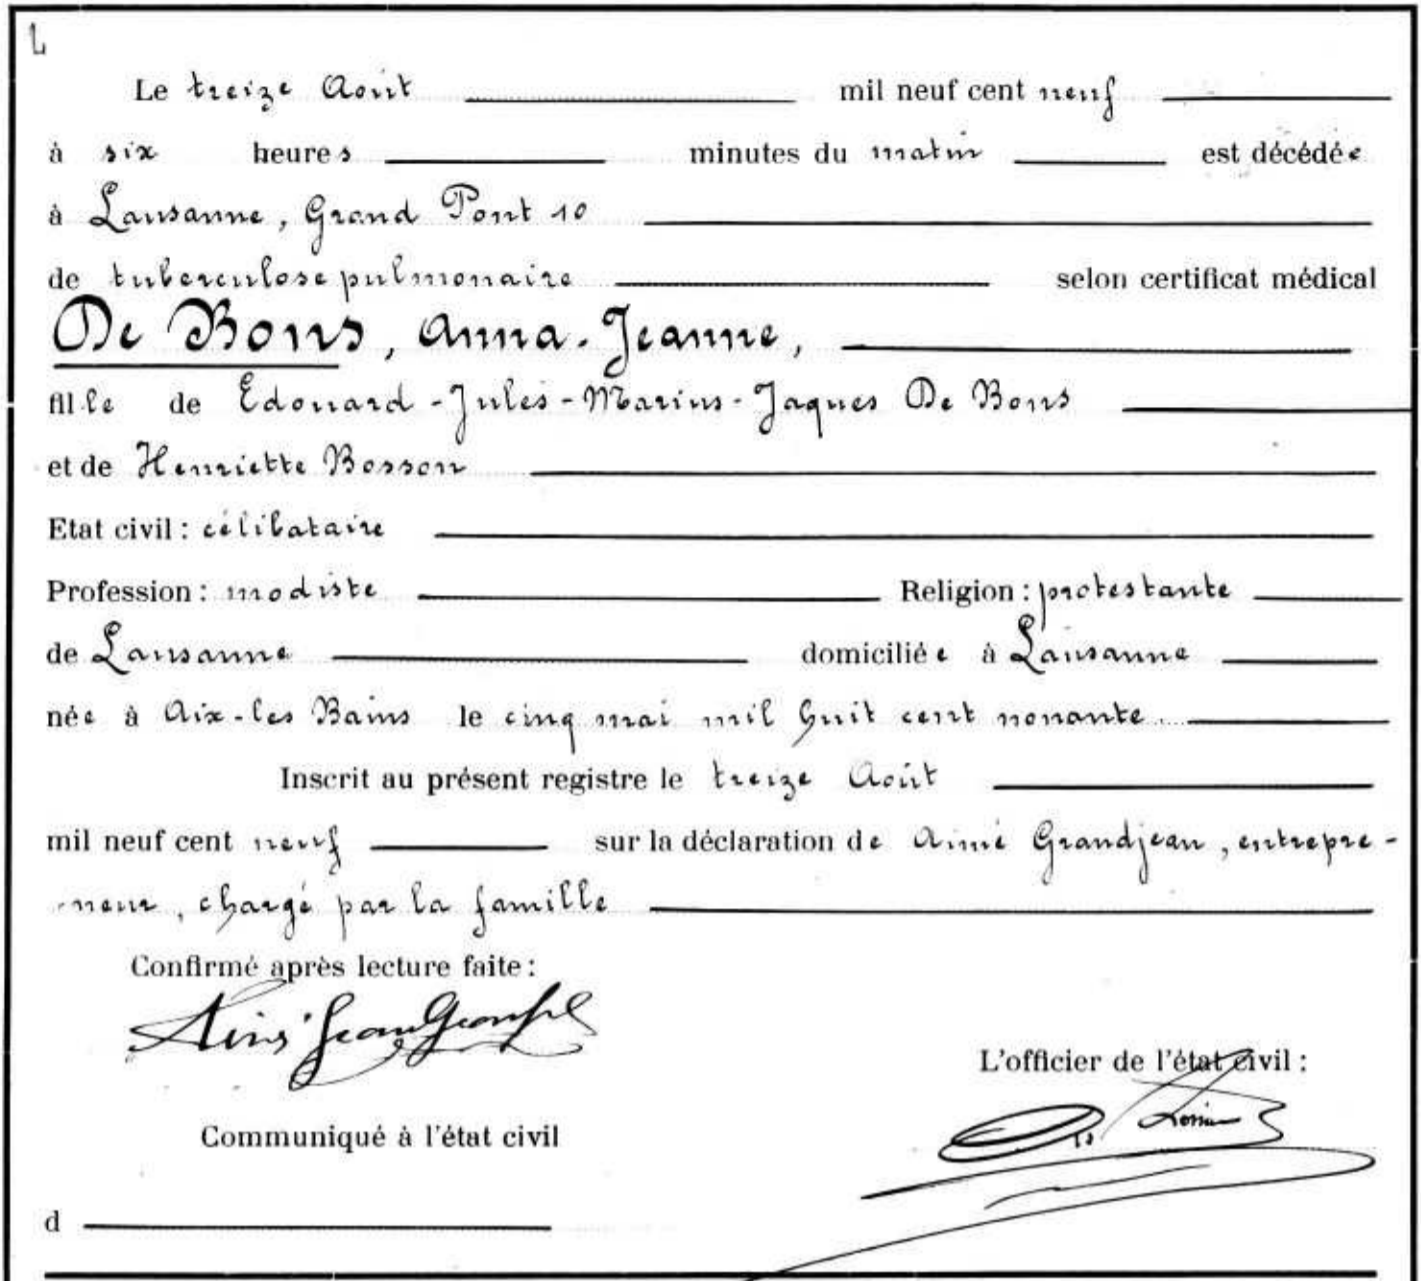 Le treize Août mil neuf cent neuf
à six heures minutes du matin est décédée
à Lausanne, Grand Pont 10
de tuberculose pulmonaire selon certificat médical
De Bons, Anna-Jeanne,
fille de Edouard-Jules-Marius-Jaques De Bons
et de Henriette Bosson
Etat civil : célibataire
Profession : modiste Religion : protestante
de Lausanne domiciliée à Lausanne
née à Aix-les Bains le cinq mai mil huit cent nonante.
Inscrit au présent registre le treize Août
mil neuf cent neuf sur la déclaration de Aimé Grandjean, entrepre-
neur, chargé par la famille
Confirmé après lecture faite :
L'officier de l'état civil :
Communiqué à l'état civil
d